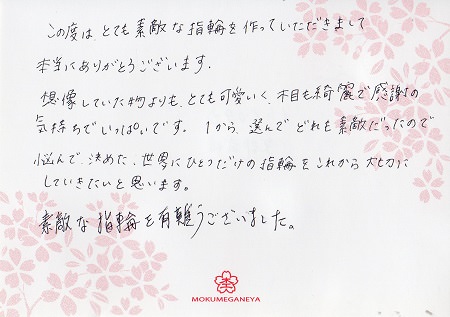 この度は とても 素敵な指輪を作っていただきまして
本当にありがとうございます.
想像していた物よりも、とても可愛いく、木目も綺麗で感謝の
気持ちでいっぱいです。 1から、選んで どれも素敵だったので
悩んで、決めた、世界にひとつだけの指輪を これから 大切に
していきたいと思います。
素敵な 指輪を有難うございました。
MOKUMEGANEYA